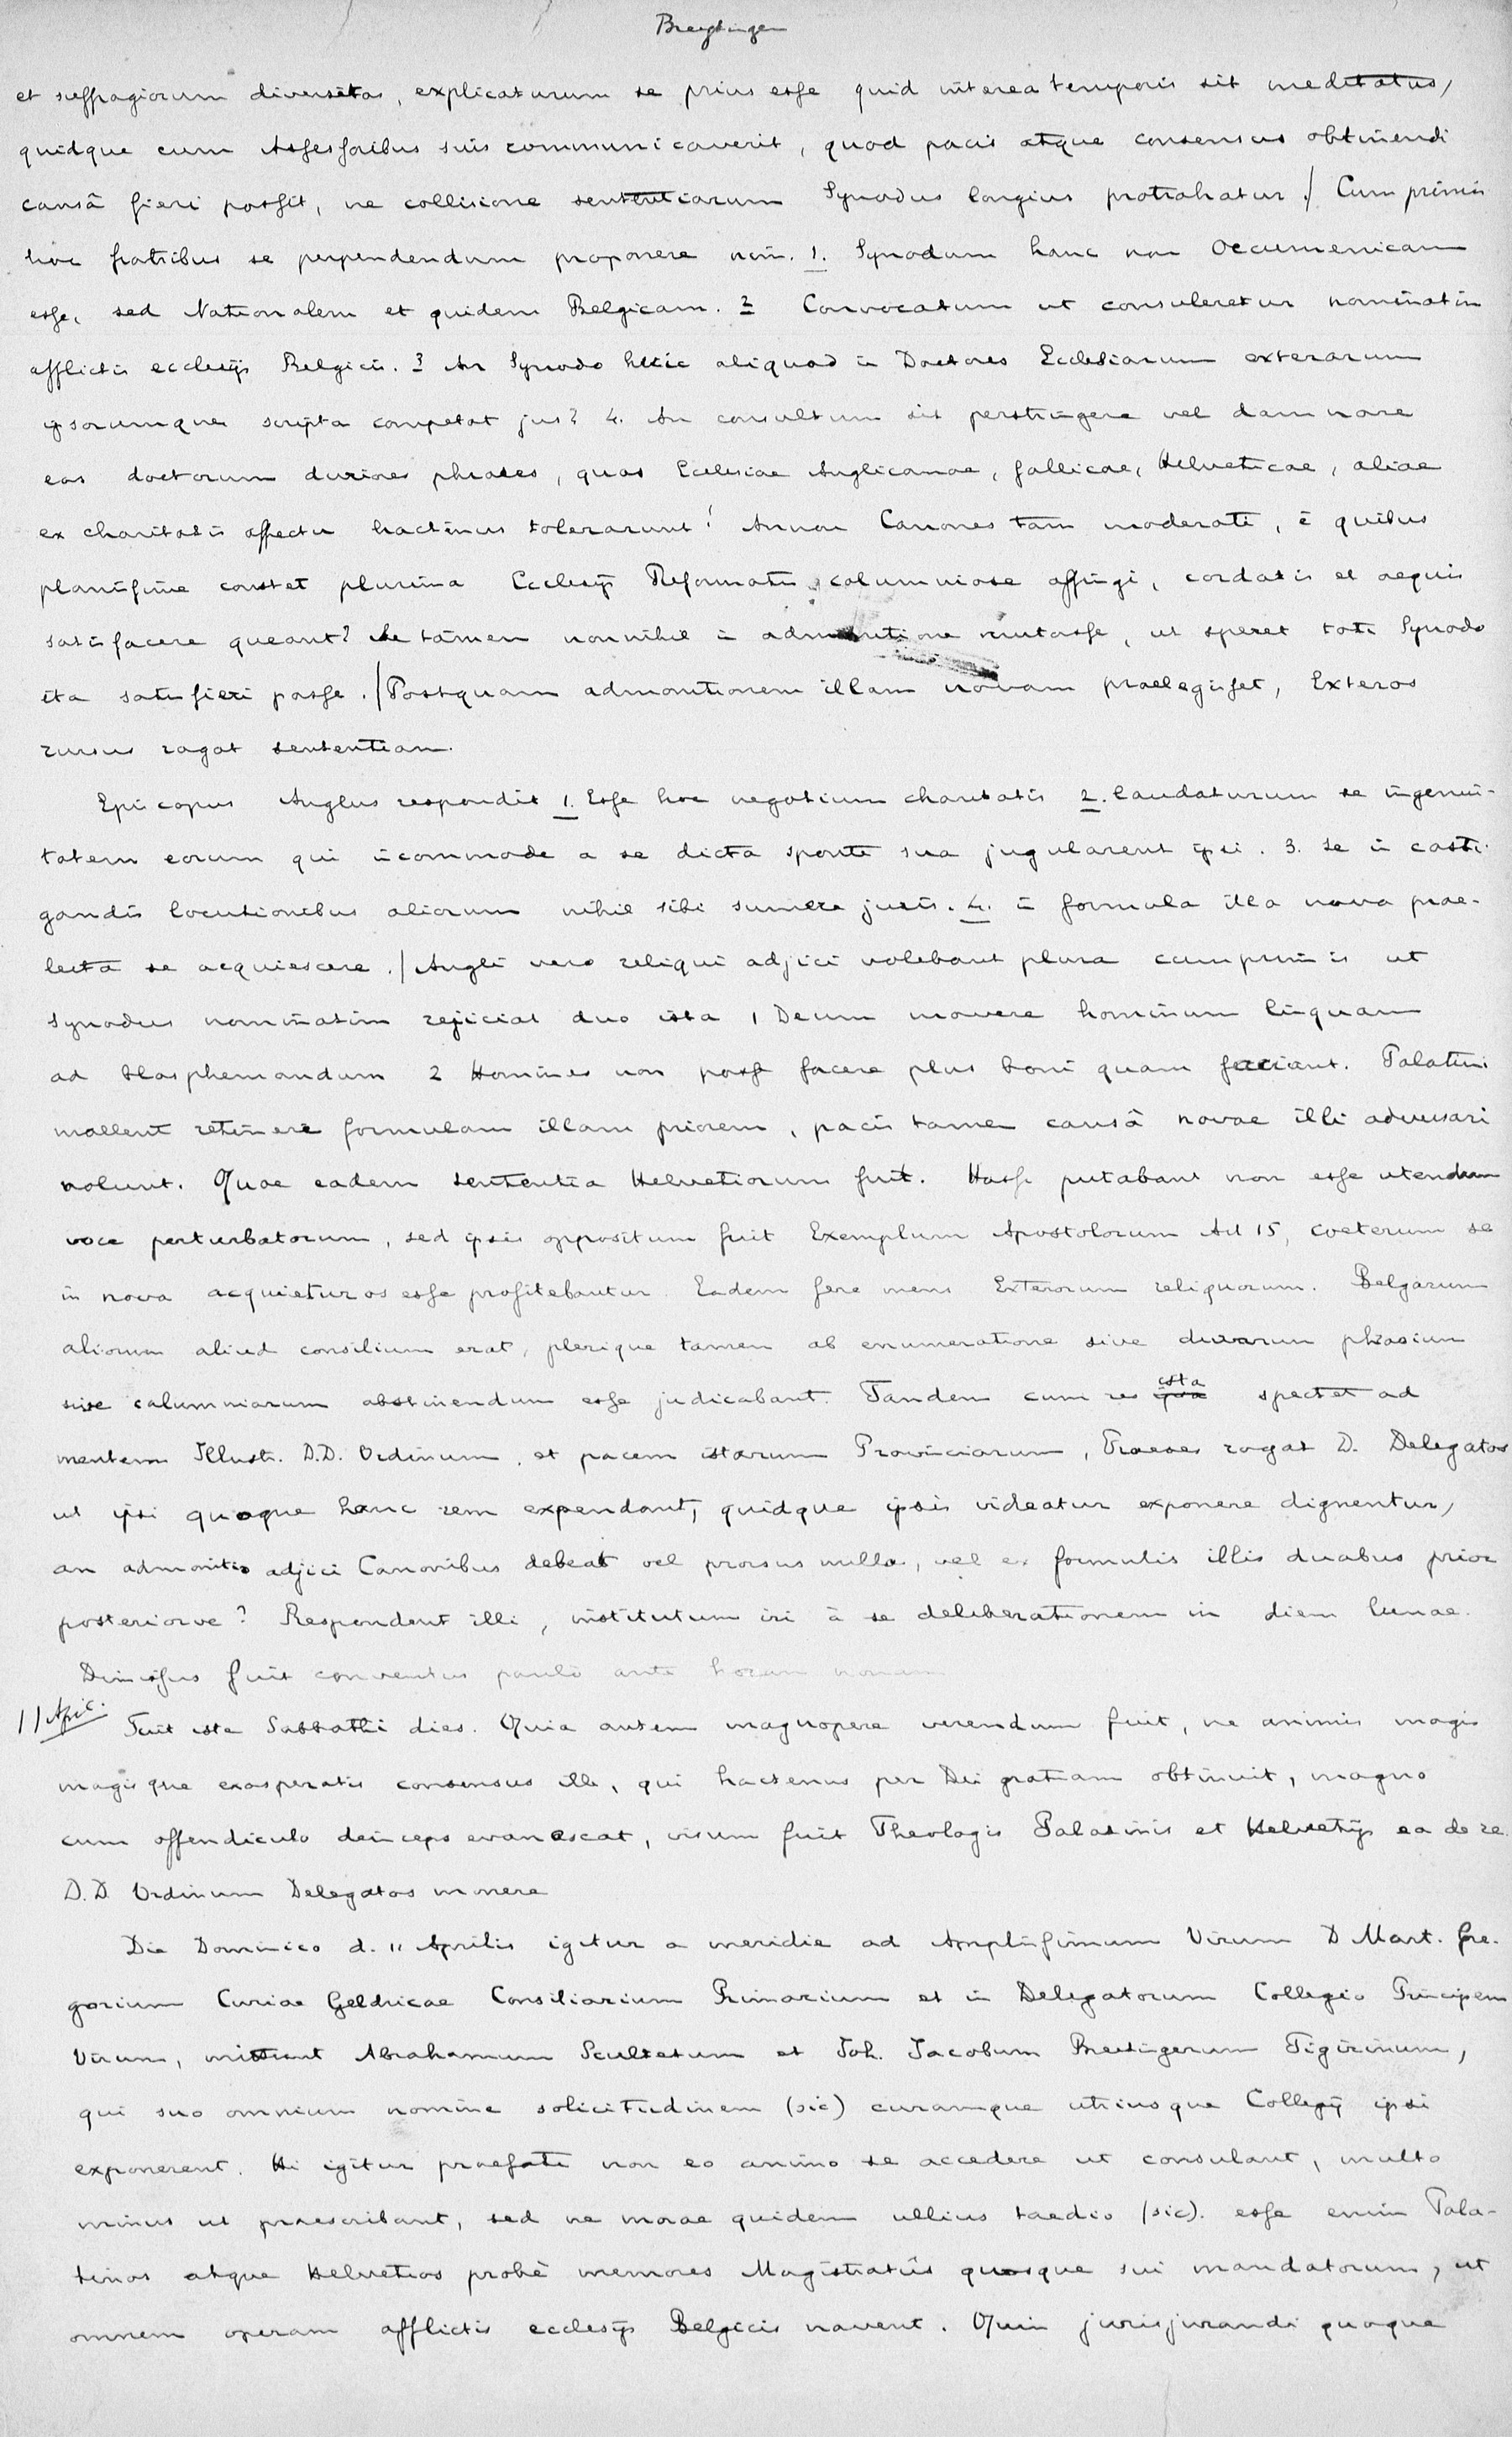 Breytinger
et suffragiorum diversitas, explicaturum se prius esse quid interea temporis sit meditatus,
quidque cum Assessoribus suis communicaverit, quod pacis atque consensus obtinendi
causâ fieri possit, ne collisione sententiarum Synodus longius protrahatur. / Cum primis
hoc fratribus se perpendendum proponere nim. 1. Synodum hanc non Oecumenicam
esse, sed Nationalem et quidem Belgicam. 2 Convocatum ut consuleretur nominatim
afflictis ecclesijs Belgicis. 3 An Synodo huic aliquod in Doctores Ecclesiarum exterarum
ipsorumque scripta competat jus? 4. An consultum sit perstringere vel damnare
eas doctorum duriores phrases, quas Ecclesiae Anglicanae, Gallicae, Helveticae, aliae
ex charitatis affectu hactenus tolerarunt? Annon Canones tam moderati, è quibus
planissime constet plurima Ecclesijs Reformatis calumniose affingi, cordatis et aequis
satisfacere queant? Se tamen nonnihil in admonitione mutasse, ut speret toti Synodo
ita satisfieri posse. / Postquam admonitionem illam novam praelegisset, Exteros
rursus rogat sententiam.
Episcopus Anglus respondit 1. Esse hoc negotium charitatis 2. laudaturum se ingenui-
tatem eorum qui incommode a se dicta sponte sua jugularent ipsi. 3. Se in casti-
gandis locutionibus aliorum nihil sibi sumere juris. 4. in formula illa nova prae-
lecta se acquiescere. / Angli vero reliqui adjici volebant plura cumprimis ut
Synodus nominatim rejiciat duo ista 1 Deum movere hominum linguam
ad blasphemandum 2 Homines non posse facere plus boni quam faciant. Palatini
mallent retinere formulam illam priorem, pacis tamen causâ novae illi adversari
nolunt. Quae eadem sententia Helvetiorum fuit. Hassi putabant non esse utendum
voce perturbatorum, sed ipsis oppositum fuit Exemplum Apostolorum Act 15, coeterum se
in nova acquieturos esse profitebantur Eadem fere mens Exterorum reliquorum. Belgarum
aliorum aliud consilium erat, plerique tamen ab enumeratione sive durarum phrasium
sive calumniarum abstinendum esse judicabant. Tandem cum res ista spectet ad
mentem Illustr. D.D. Ordinum, et pacem istarum Provinciarum, Praeses rogat D. Delegatos
ut ipsi quoque hanc rem expendant, quidque ipsis videatur exponere dignentur,
an admonitio adjici Canonibus debeat vel prorsus nulla, vel ex formulis illis duabus prior
posteriorve? Respondent illi, institutum iri à se deliberationem in diem lunae.
Dimissus fuit conventus paulò ante horam nonam
11 April. Fuit iste Sabbathi dies. Quia autem magnopere verendum fuit, ne animis magis
magisque exasperatis consensus ille, qui hactenus per Dei gratiam obtinuit, magno
cum offendiculo deinceps evanescat, visum fuit Theologis Palatinis et Helvetijs ea de re
D.D. Ordinum Delegatos monere
Die Dominico d. 11 Aprilis igitur a meridie ad Amplissimum Virum D Mart. Gre-
gorium Curiae Geldricae Consiliarium Primarium et in Delegatorum Collegio Principem
Virum, mittunt Abrahamum Scultetum et Joh. Jacobum Breitingerum Tigurinum,
qui suo omnium nomine solicitudinem (sic) curamque utriusque Collegij ipsi
exponerent. Hi igitur praefati non eo animo se accedere ut consulant, multo
minus ut praescribant, sed ne morae quidem ullius taedio (sic). esse enim Pala-
tinos atque Helvetios probè memores Magistratûs quosque sui mandatorum, ut
omnem operam afflictis ecclesijs Belgicis navent. Quin jurisjurandi quoque